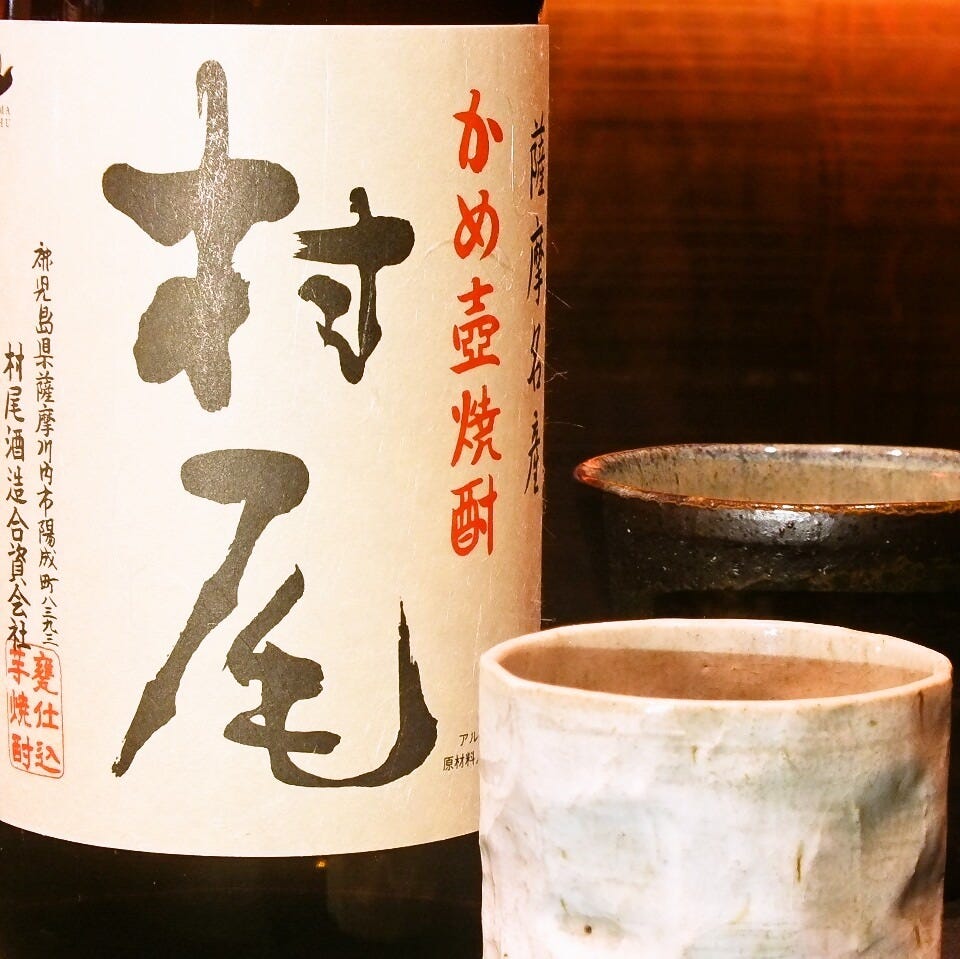 薩摩名産
かめ壺焼酎
村尾
鹿児島県薩摩川内市陽成町八三九三
村尾酒造合資会社
甕仕込
芋焼酎
アル
原材料